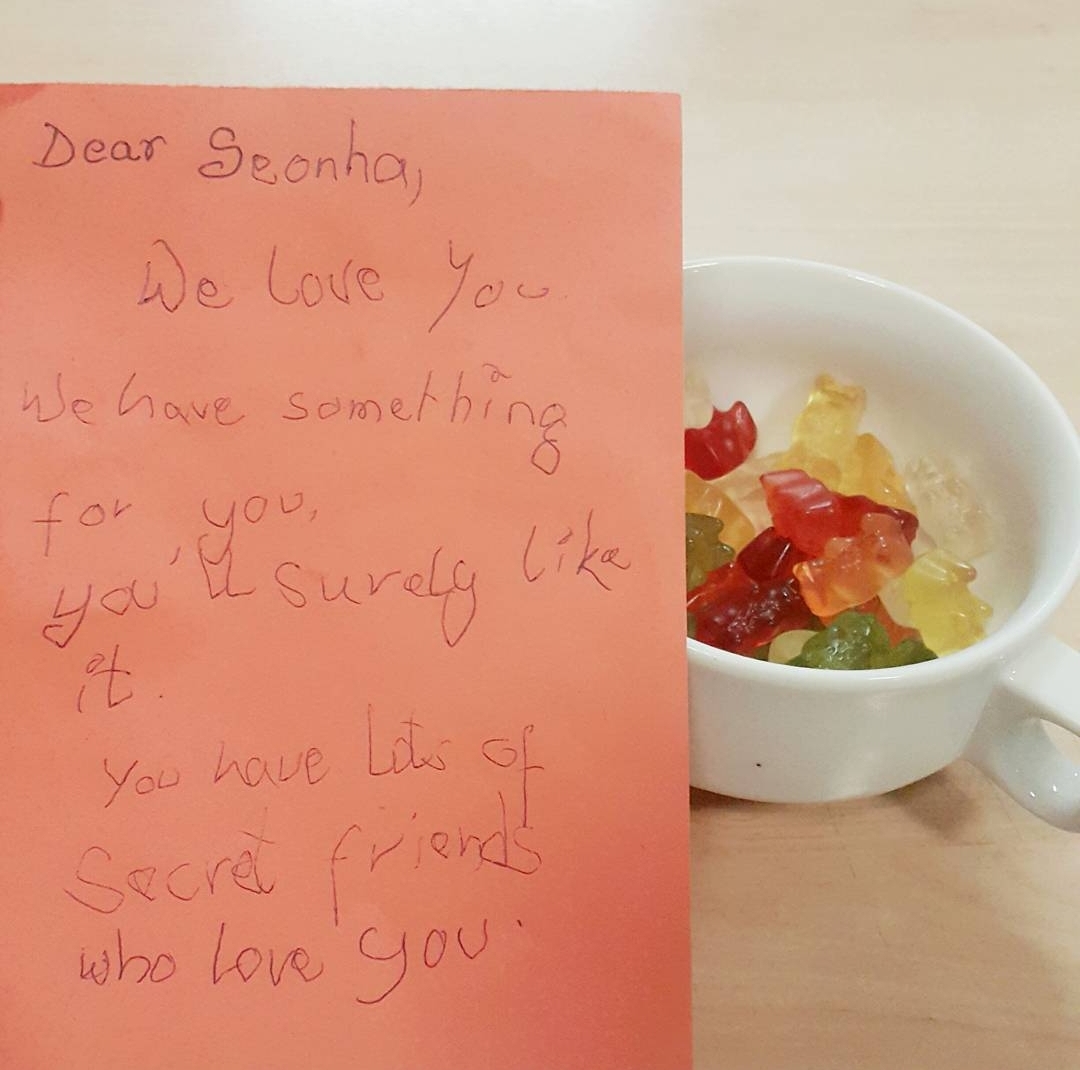 Dear Seonha,
We love you
We have something
for you,
you'll surely like
it.
You have lots of
Secret friends
who love you.